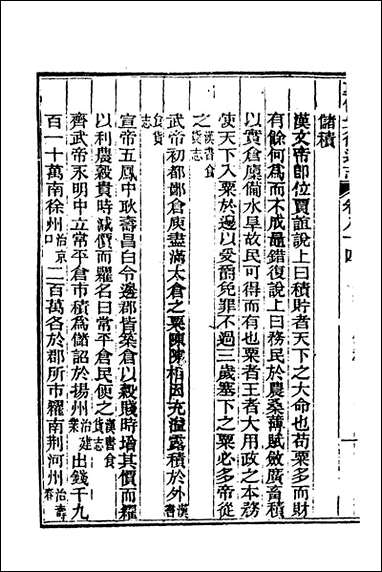 儲積
漢文帝卽位賈誼說上曰積貯者天下之大命也苟粟多而財
有餘何爲而不成鼂錯復說上曰務民於農桑薄賦斂廣畜積
以實倉廩備水旱故民可得而有也粟者王者大用政之本務
使天下入粟於邊以受爵免罪不過三歲塞下之粟必多帝從
之漢書食貨志
武帝初都鄙倉庾盡滿太倉之粟陳陳相因充溢露積於外漢書
食貨志
宣帝五鳳中耿壽昌白令邊郡皆築倉以穀賤時增其價而糴
以利農穀貴時減價而糶名曰常平倉民便之漢書食貨志
齊武帝永明中立常平倉市積爲儲詔於揚州治建業出錢千九
百一十萬南徐州治京口二百萬各於郡所市糴南荆河州治壽春